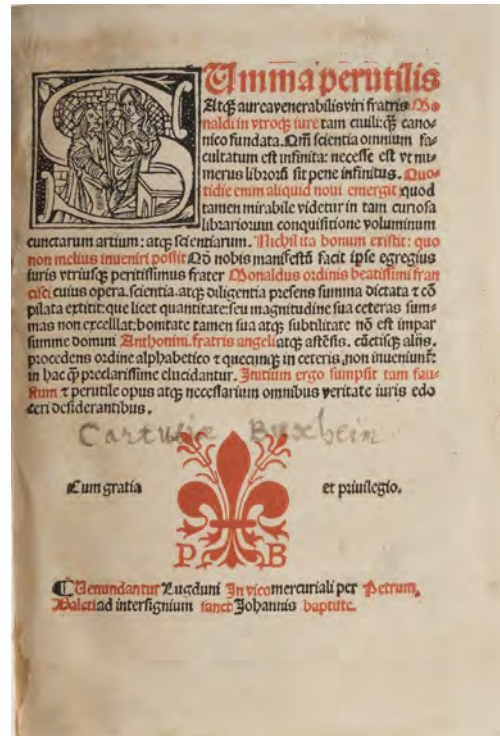 SUmma perutilis
Atqꝫ aurea venerabilis viri fratris Mo-
naldi in vtroqꝫ iure tam ciuili: qꝫ cano-
nico fundata. Qm̄ scientia omnium fa-
cultatum est infinita: necesse est vt nu-
merus librorū sit pene infinitus. Quo-
tidie enim aliquid noui emergit quod
tamen mirabile videtur in tam curiosa
librariorum conquisitione voluminum
cunctarum artium: atqꝫ scientiarum. Nichil ita bonum existit: quo
non melius inueniri possit Qḋ nobis manifestū facit ipse egregius
iuris vtriusqꝫ peritissimus frater Monaldus ordinis beatissimi fran
cisci cuius opera. scientia. atqꝫ diligentia presens summa dictata ⁊ cō
pilata extitit: que licet quantitate: seu magnitudine sua ceteras sum-
mas non excellat: bonitate tamen sua atqꝫ subtilitate nō est impar
summe domini Anthonini. fratris angeli atqꝫ astēsis. cūctisqꝫ alijs.
procedens ordine alphabetico ⁊ quecunqꝫ in ceteris non inueniunt̄:
in hac qꝫ preclarissime elucidantur. Initium ergo sumpsit tam fau-
stum ⁊ perutile opus atqꝫ necessarium omnibus veritate iuris edo
ceri desiderantibus.
Cartusie Buxheim
Cum gratia et priuilegio.
P B
¶ Uenundantur Lugduni In vico mercuriali per Petrum
Baleti ad intersignium sancti Johannis baptiste.